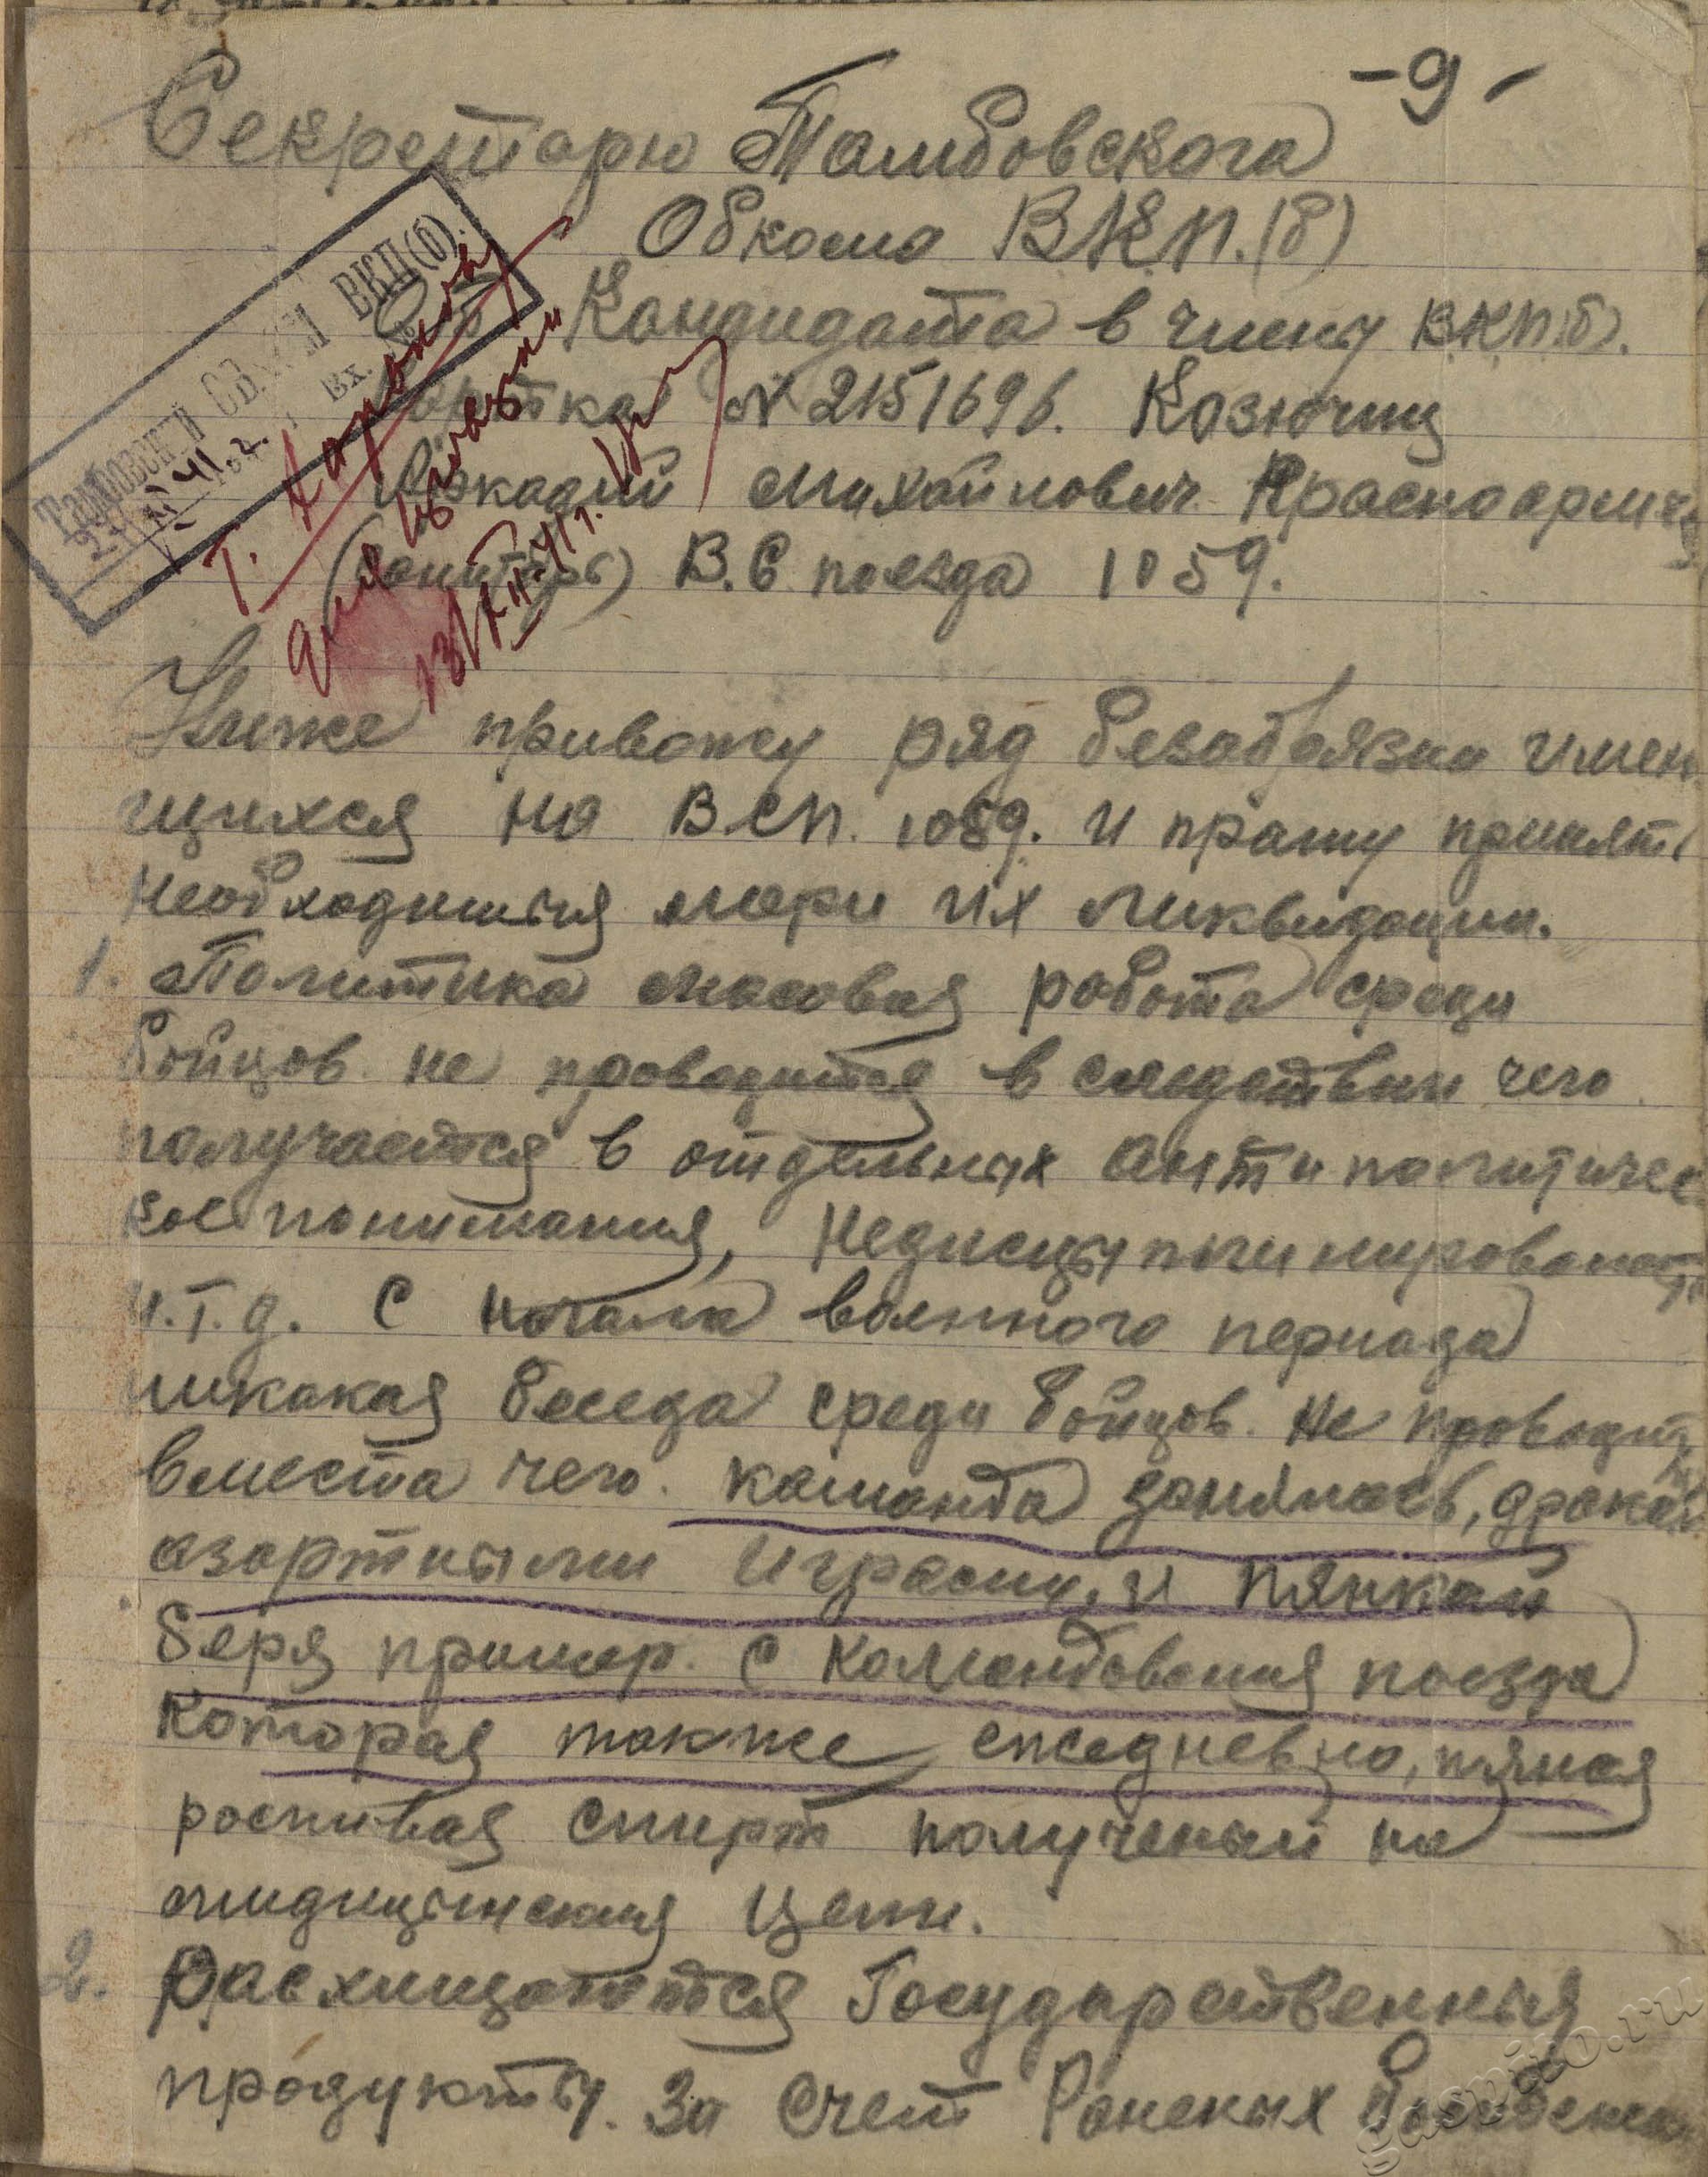 -9-
Секретарю Тамбовского
Обкома В.К.П.(б)
От Кандидата в члены ВКП(б).
карточка № 2151696. Козючиц
Аркадий Михайлович Красноармеец
(Санитар) В.С. поезда 1059.
Тамбовский ОБКОМ ВКП(б).
Вх. №
Т.
Для
13/XII-41 г.
Ниже привожу ряд безабразии имею
щихся на В.С.П. 1059. и прашу принять
необходимыя мери их ликвидации.
1. Политика масовая работа среди
бойцов не проводится в следствии чего
получается в отдельных анти политичес
кое понимания, Недисцыплинированость
и.т.д. С начала военного периада
никакая беседа среди бойцов. Не проводится
вместа чего. команда занялась, дракай
азартными играми, и пянкай
беря пример. с командования поезда
которая также ежедневно, пяная
роспивая спирт полученый на
мидицынския цели.
2. Расхищаются Государственныя
продукты. За Счет Раненых
gaspito.ru